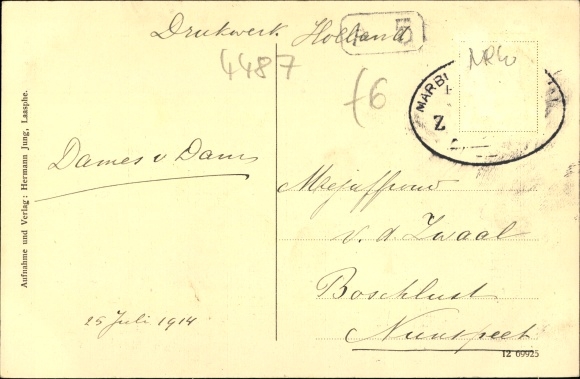 Drukwerk Holland
4487
f6
NRW
MARB
Z
Dames v Dam
Mejuffrouw
v. d. Zwaal
Boschlust
Nunspeet
25 Juli 1914
Aufnahme und Verlag: Hermann Jung, Laasphe.
12 09925